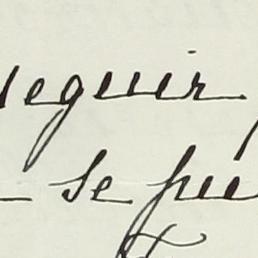 seguir
- se fué